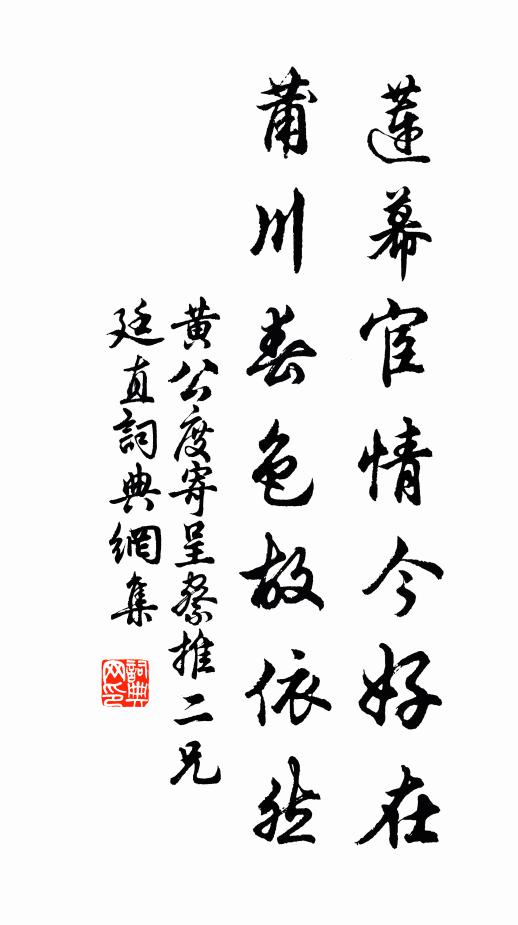 蓮幕宦情今好在
莆川春色故依然
黃公度寄呈察推二兄
廷直詞典網集
詞典網印